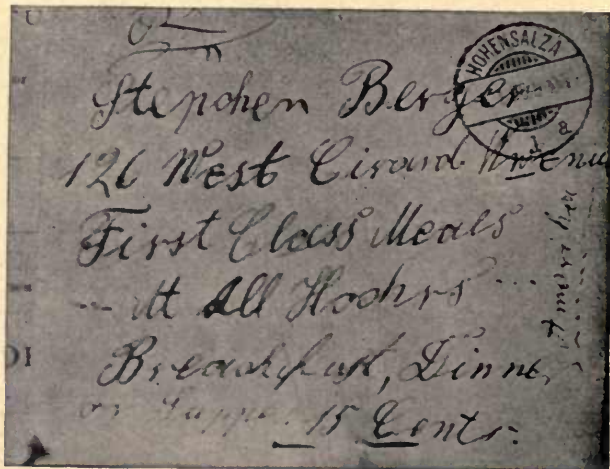 HOHENSALZA
Stepohen Berger
126 West Cirard Awenue
First Class Meals
att All Hoohrs
Breackfast, Dinner
or Supper 15 Cents.
Amerika